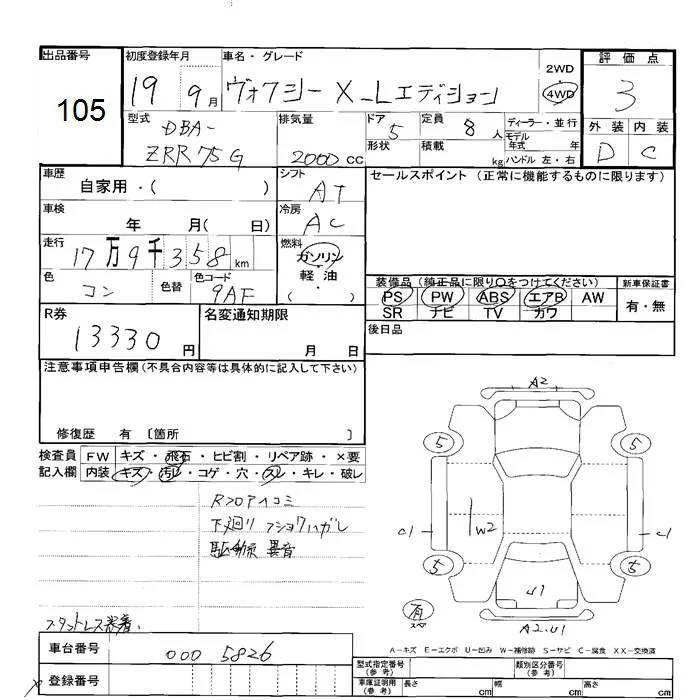 出品番号
105
初度登録年月
19 9月
車名・グレード
ヴォクシー X_Lエディション
2WD
4WD
評価点
3
外装 内装
D C
型式
DBA-
ZRR75G
排気量
2000 cc
ドア 5
形状
定員 8 人
積載 kg
ディーラー・並行
モデル
年式 年
ハンドル 左・右
車歴
自家用・( )
シフト
AT
車検
年 月( 日)
冷房
AC
走行
17万9千358km
燃料
ガソリン
軽油
( ・ )
色
コン
色替
色コード
9AF
セールスポイント (正常に機能するものに限ります)
装備品 (純正品に限り○をつけてください)
PS PW ABS エアB AW
SR ナビ TV カワ
新車保証書
有・無
R券
13330円
名変通知期限
月 日
後日品
注意事項申告欄 (不具合内容等は具体的に記入して下さい)
修復歴 有 〔箇所 〕
検査員
記入欄
FW キズ・飛石・ヒビ割・リペア跡・×要
内装 キズ・汚レ・コゲ・穴・スレ・キレ・破レ
下廻り フショクハガレ
異音
スタットレス装着.
A2
5
5
C1
W2
C1
5
5
U1
有
スペ
A2.U1
A-キズ E-エクボ U-凹み W-補修跡 S-サビ C-腐食 XX-交換済
車台番号
000 5826
登録番号
型式指定番号
(参考)
類別区分番号
(参考)
車庫証明用
(参考)
長さ cm 幅 cm 高さ cm